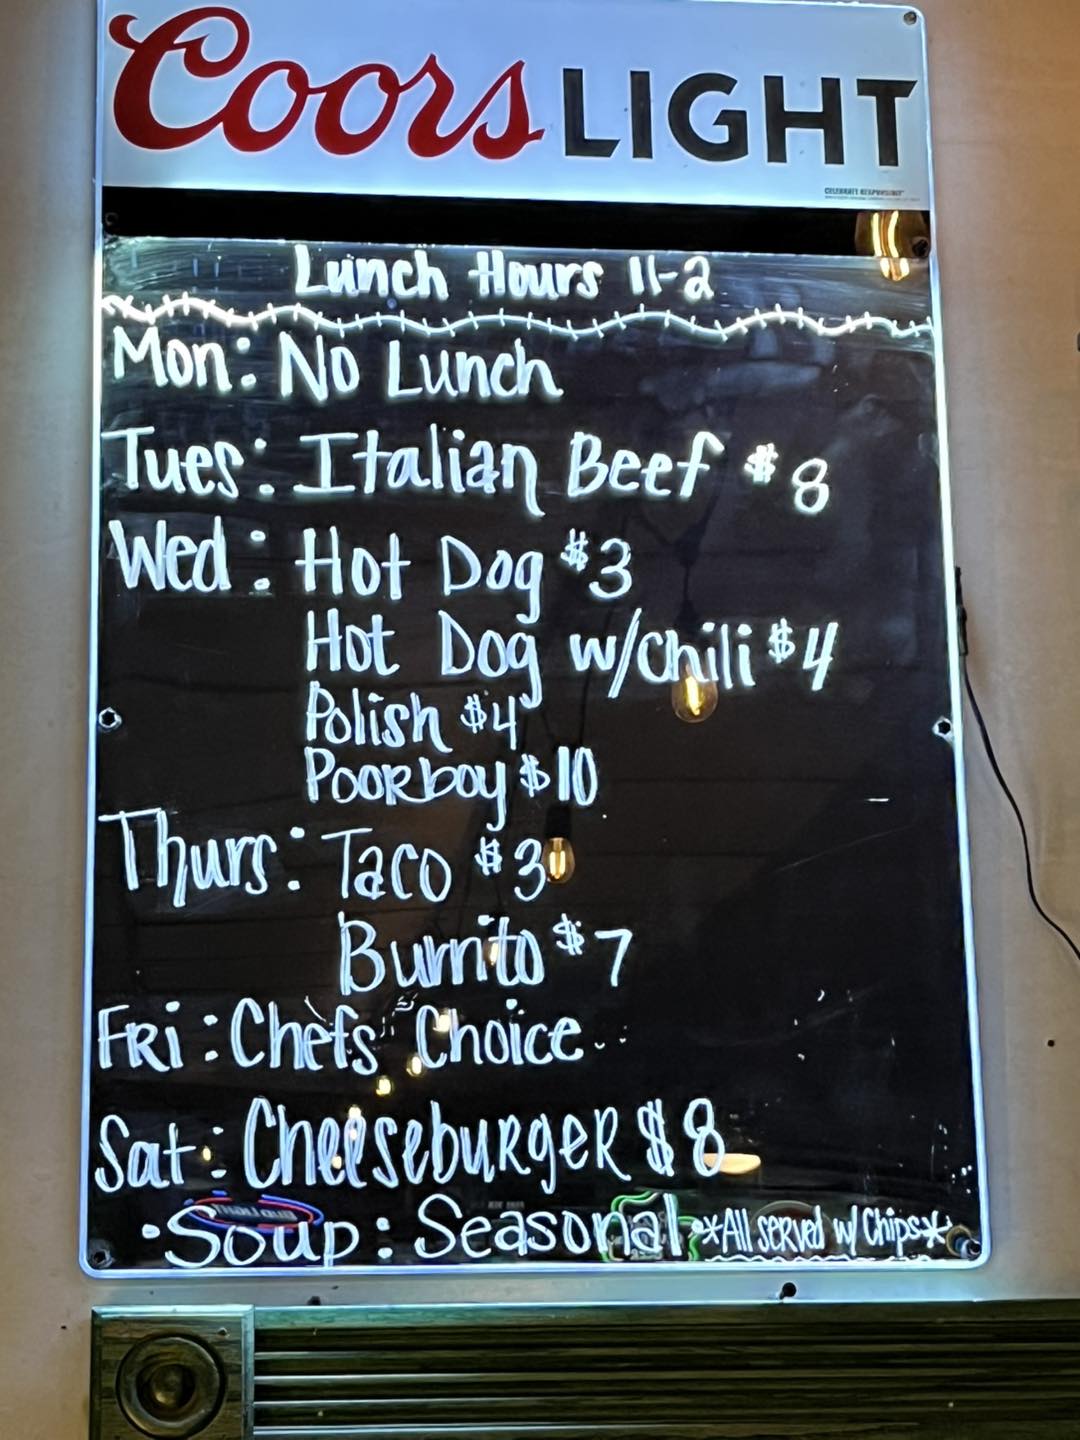 Coors LIGHT
CELEBRATE RESPONSIBLY
Lunch Hours 11-2
Mon: No Lunch
Tues: Italian Beef $8
Wed: Hot Dog $3
Hot Dog w/chili $4
Polish $4
Poorboy $10
Thurs: Taco $3
Burrito $7
Fri: Chefs Choice
Sat: Cheeseburger $8
•Soup: Seasonal •*All served w/ Chips*